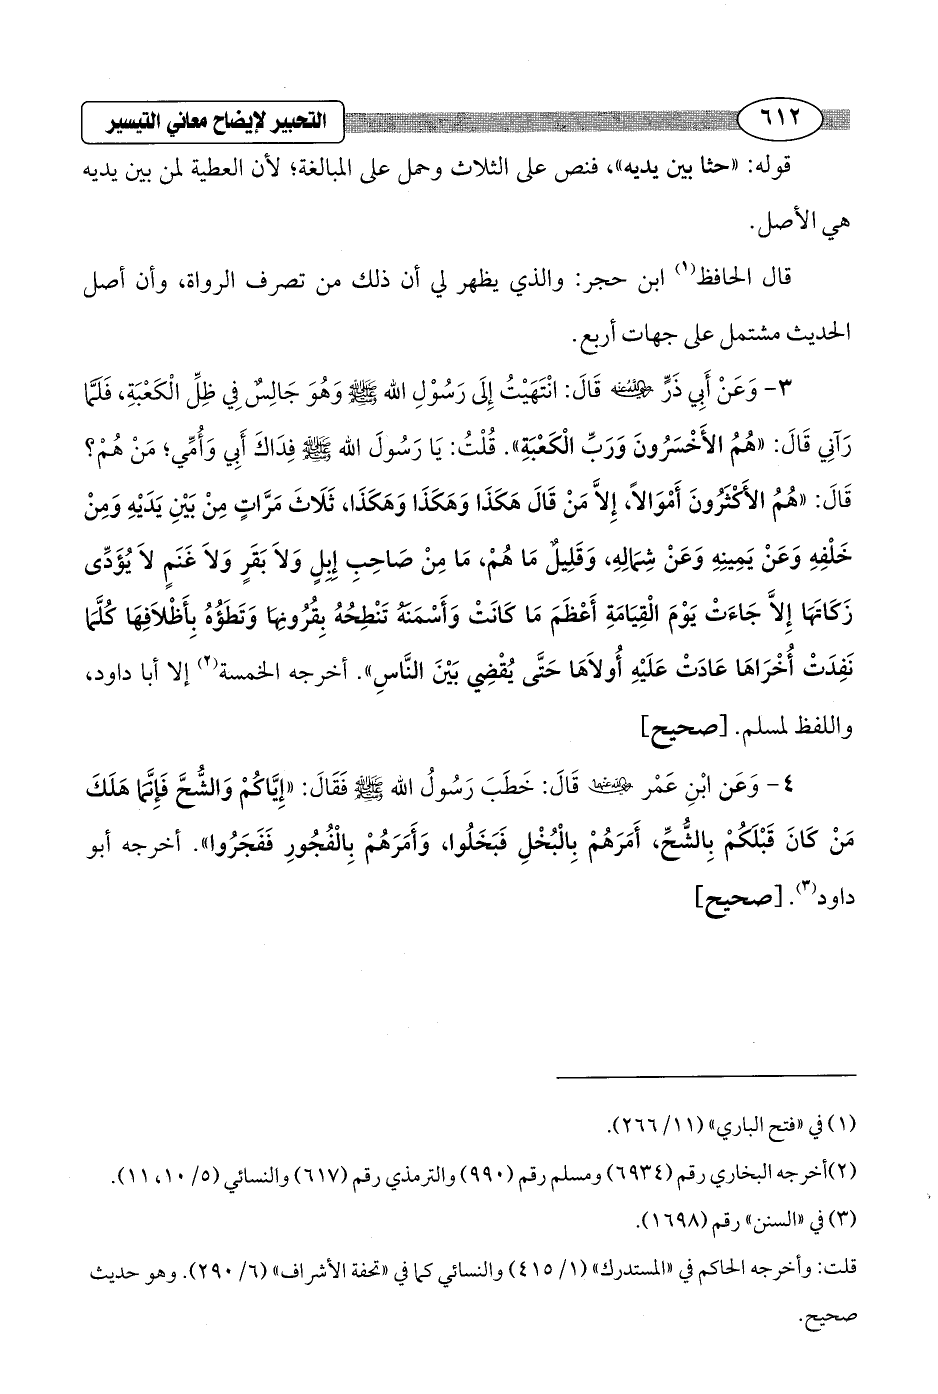 التحبير لإيضاح معاني التيسير ٦١٢
قوله: «حثا بين يديه»، فنص على الثلاث وحمل على المبالغة؛ لأن العطية لمن بين يديه
هي الأصل.
قال الحافظ(١) ابن حجر: والذي يظهر لي أن ذلك من تصرف الرواة، وأن أصل
الحديث مشتمل على جهات أربع.
٣- وَعَنْ أَبِي ذَرٍّ رضي الله عنه قَالَ: انْتَهَيْتُ إِلَى رَسُوْلِ الله ﷺ وَهُوَ جَالِسٌ فِي ظِلِّ الْكَعْبَةِ، فَلَمَّا
رَآنِي قَالَ: «هُمُ الأَخْسَرُونَ وَرَبِّ الْكَعْبَةِ». قُلْتُ: يَا رَسُولَ الله ﷺ فِدَاكَ أَبِي وَأُمِّي؛ مَنْ هُمْ؟
قَالَ: «هُمُ الأَكْثَرُونَ أَمْوَالاً، إِلاَّ مَنْ قَالَ هَكَذَا وَهَكَذَا وَهَكَذَا، ثَلَاثَ مَرَّاتٍ مِنْ بَيْنِ يَدَيْهِ وَمِنْ
خَلْفِهِ وَعَنْ يَمِينِهِ وَعَنْ شِمَالِهِ، وَقَلِيلٌ مَا هُمْ، مَا مِنْ صَاحِبِ إِبِلٍ وَلاَ بَقَرٍ وَلاَ غَنَمٍ لاَ يُؤَدِّى
زَكَاتَهَا إِلاَّ جَاءَتْ يَوْمَ الْقِيَامَةِ أَعْظَمَ مَا كَانَتْ وَأَسْمَنَهُ تَنْطِحُهُ بِقُرُونِهَا وَتَطَؤُهُ بِأَظْلاَفِهَا كُلَّمَا
نَفِدَتْ أُخْرَاهَا عَادَتْ عَلَيْهِ أُولاَهَا حَتَّى يُقْضِي بَيْنَ النَّاسِ». أخرجه الخمسة(٢) إلا أبا داود،
واللفظ لمسلم. [صحيح]
٤- وَعَن ابْنِ عَمْر رضي الله عنهما قَالَ: خَطَبَ رَسُولُ الله ﷺ فَقَالَ: «إِيَّاكُمْ وَالشُّحَّ فَإِنَّمَا هَلَكَ
مَنْ كَانَ قَبْلَكُمْ بِالشُّحِّ، أَمَرَهُمْ بِالْبُخْلِ فَبَخَلُوا، وَأَمَرَهُمْ بِالْفُجُورِ فَفَجَرُوا». أخرجه أبو
داود(٣). [صحيح]
(١) في «فتح الباري» (١١/ ٢٦٦).
(٢)أخرجه البخاري رقم (٦٩٣٤) ومسلم رقم (٩٩٠) والترمذي رقم (٦١٧) والنسائي (٥/ ١٠، ١١).
(٣) في «السنن» رقم (١٦٩٨).
قلت: وأخرجه الحاكم في «المستدرك» (١/ ٤١٥) والنسائي كما في «تحفة الأشراف» (٦/ ٢٩٠). وهو حديث
صحيح.